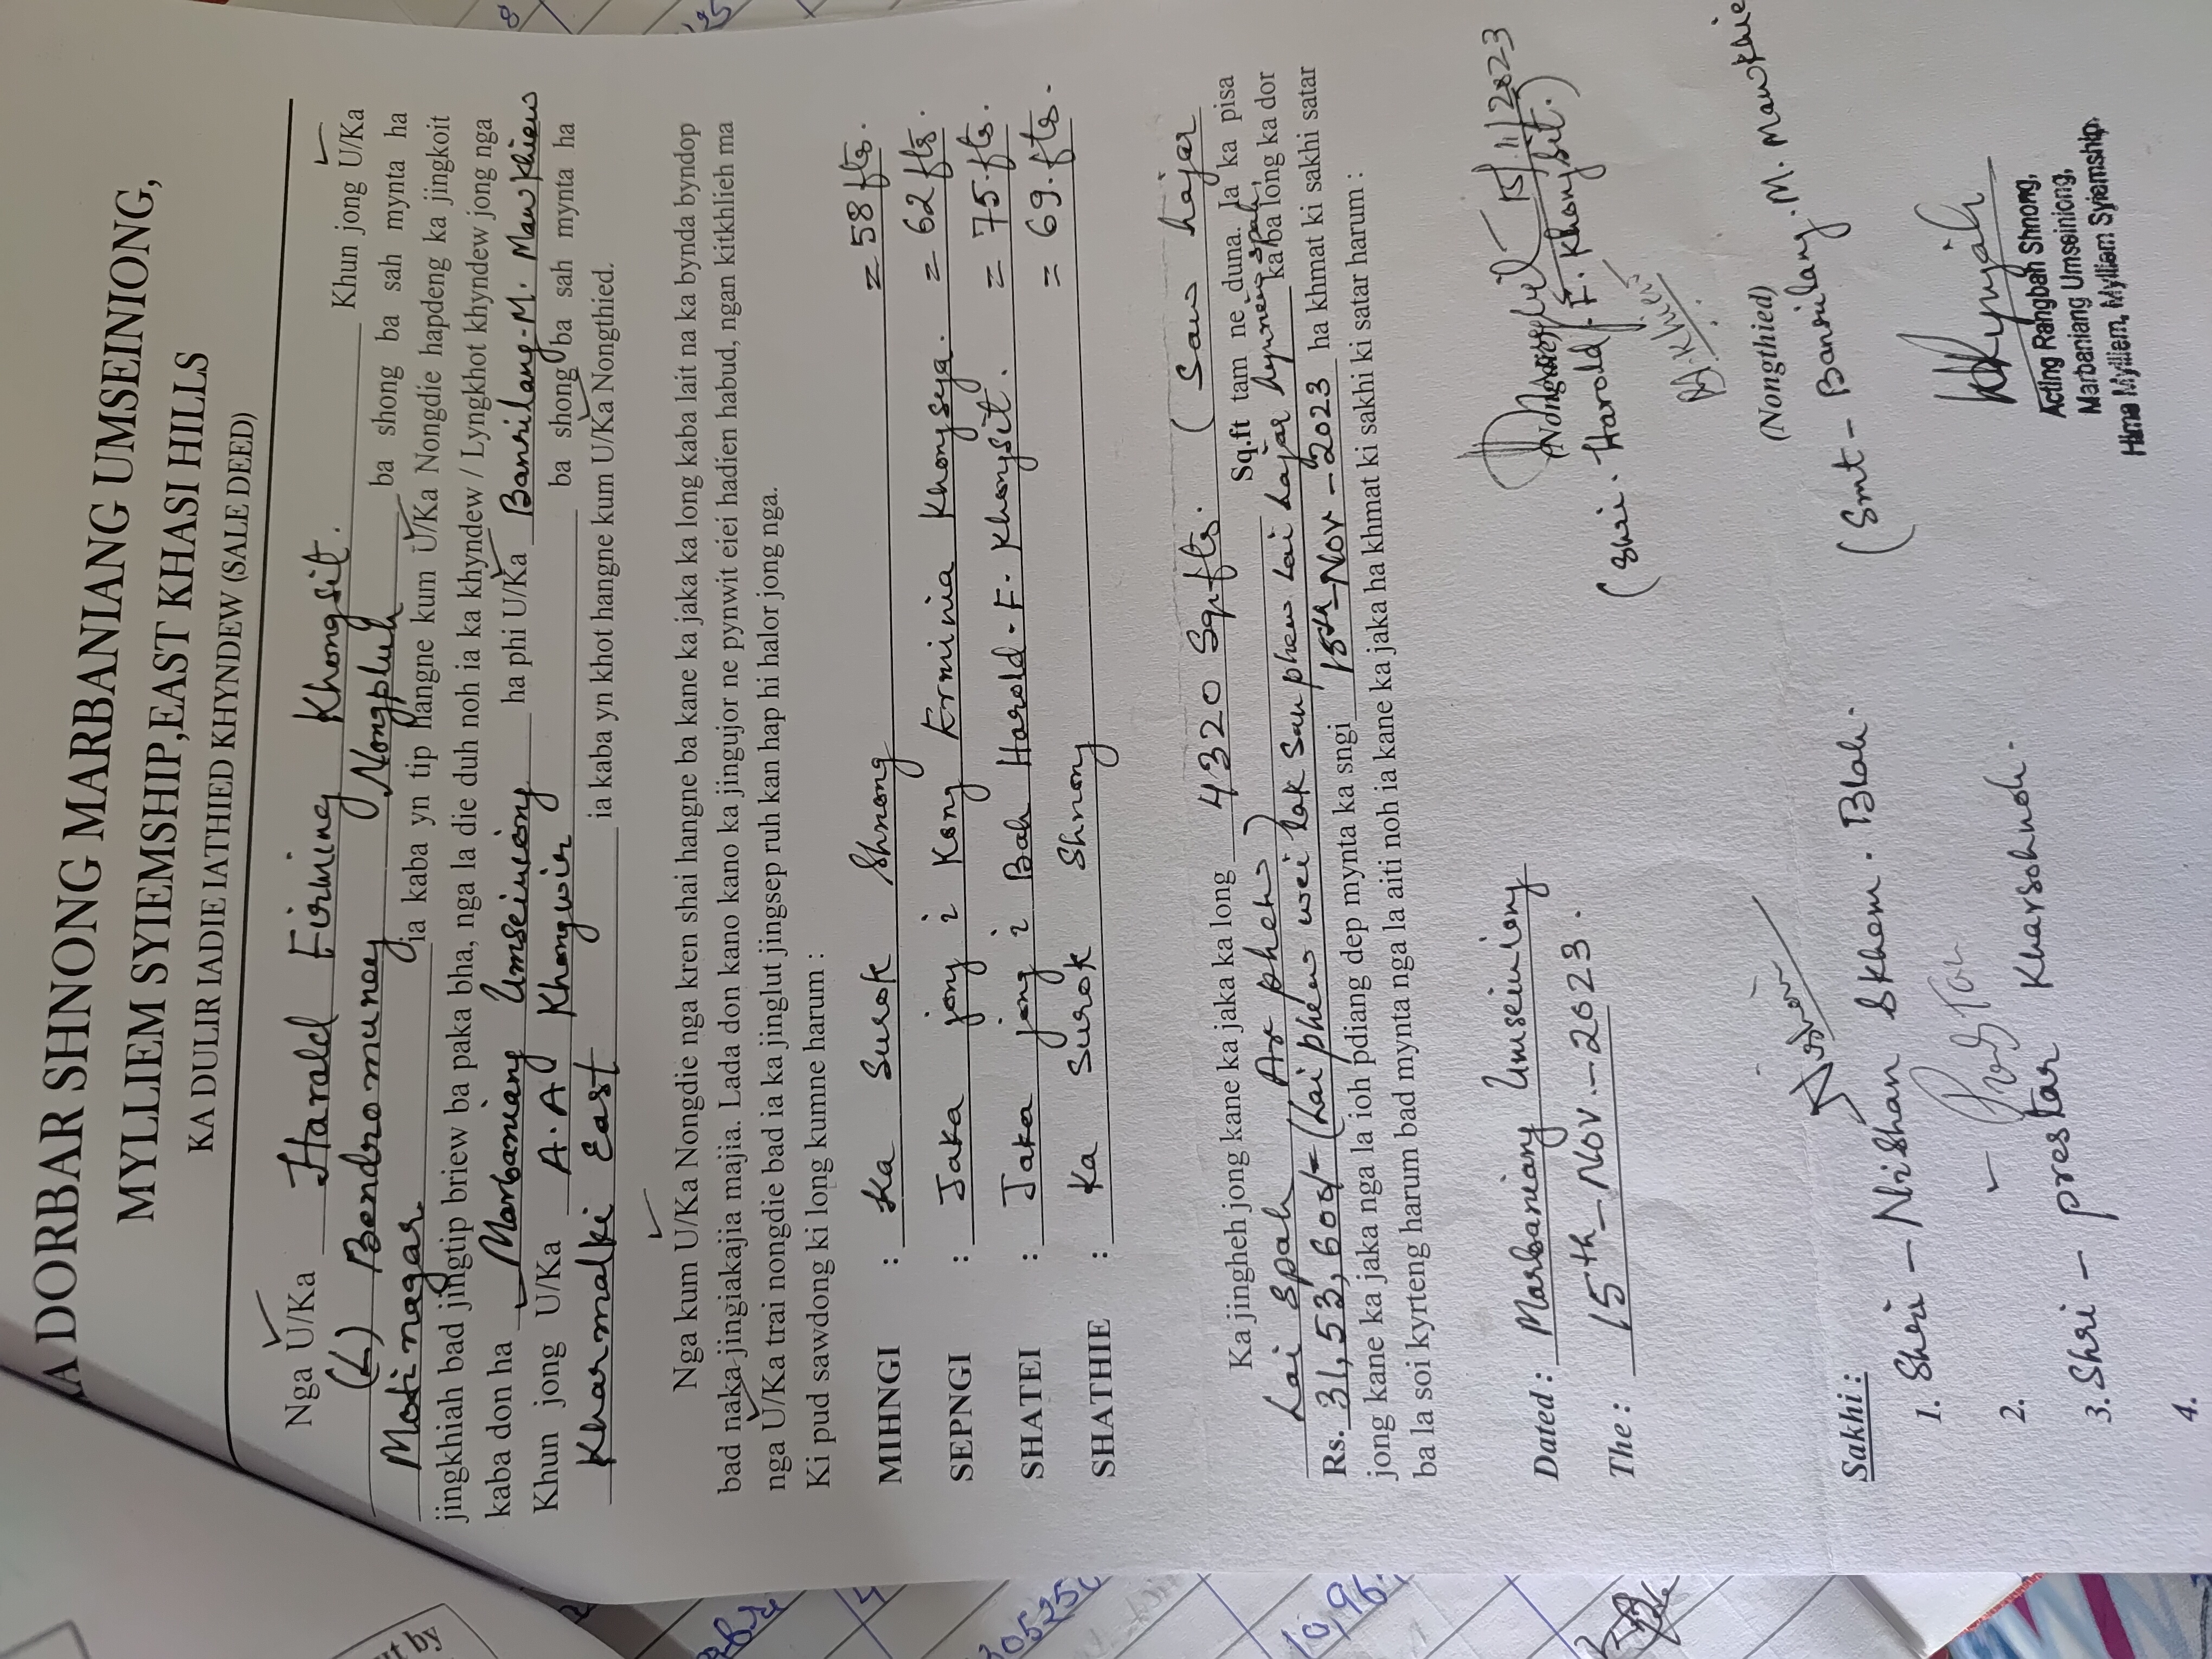 A DORBAR SHNONG MARBANIANG UMSEINIONG,
MYLLIEM SYIEMSHIP, EAST KHASI HILLS
KA DULIR IADIE IATHIED KHYNDEW (SALE DEED)
Nga U/Ka Harald Firming Khongsit. Khun jong U/Ka
(L) Bendromuney Nongpluh ba shong ba sah mynta ha
Motinagar ia kaba yn tip hangne kum U/Ka Nongdie hapdeng ka jingkoit
jingkhiah bad jingtip briew ba paka bha, nga la die duh noh ia ka khyndew / Lyngkhot khyndew jong nga
kaba don ha Marbaniang Umseiniong ha phi U/Ka Banrilang-M. Mawkhiew
Khun jong U/Ka A. A Khongwir ba shong ba sah mynta ha
Kharmalki East ia kaba yn khot hangne kum U/Ka Nongthied.
Nga kum U/Ka Nongdie nga kren shai hangne ba kane ka jaka ka long kaba lait na ka bynda byndop
bad naka jingiakajia majia. Lada don kano kano ka jingujor ne pynwit eiei hadien habud, ngan kitkhlieh ma
nga U/Ka trai nongdie bad ia ka jinglut jingsep ruh kan hap hi halor jong nga.
Ki pud sawdong ki long kumne harum :
MIHNGI : Ka Surok Shnong = 58 fts.
SEPNGI : Jaka jong i Kong Erminia Khonsya. = 62 fts.
SHATEI : Jaka jong i Bah Harold. F. Khongsit. = 75. fts.
SHATHIE : Ka Surok Shnong = 69. fts.
Ka jingheh jong kane ka jaka ka long 4320 Sq.fts. (Saw hajar
Lai Spah Ar phew) Sq.ft tam ne duna. Ia ka pisa
Rs. 31,53,600/- (Lai phew wei lak San phew lai hajar hynnew spah, kaba long ka dor
jong kane ka jaka nga la ioh pdiang dep mynta ka sngi 15th-Nov-2023 ha khmat ki sakhi satar
ba la soi kyrteng harum bad mynta nga la aiti noh ia kane ka jaka ha khmat ki sakhi ki satar harum :
Dated : Marbaniang Umseiniong
The : 15th-Nov.-2023.
15/11/2023
(Nongdie)
(Shri. Harold. F. Khongsit.)
(Nongthied)
(Smt - Banrilang. M. Mawkhiew
Sakhi :
1. Shri - Nishan Skhem. Blah.
2.
3. Shri - prestar Kharsohnoh.
4.
Acting Rangbah Shnong,
Marbaniang Umseiniong,
Hima Mylliem, Mylliem Syiemship